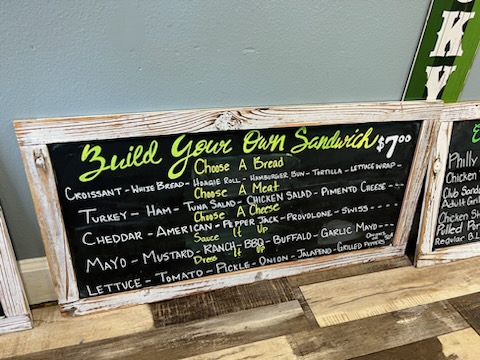 Build Your Own Sandwich $7.00
Choose A Bread
CROISSANT - WHITE BREAD - HOAGIE ROLL - HAMBURGER BUN - TORTILLA - LETTUCE WRAP
Choose A Meat
TURKEY - HAM - TUNA SALAD - CHICKEN SALAD - PIMENTO CHEESE
Choose A Cheese
CHEDDAR - AMERICAN - PEPPER JACK - PROVOLONE - SWISS
Sauce It Up
MAYO - MUSTARD - RANCH - BBQ - BUFFALO - GARLIC MAYO
Dress It Up
LETTUCE - TOMATO - PICKLE - ONION - JALAPENO - GRILLED PEPPERS
K
Y
Philly
Chicken
Club Sand
Adult Gril
Chicken S
Pulled Por
Regular B.L